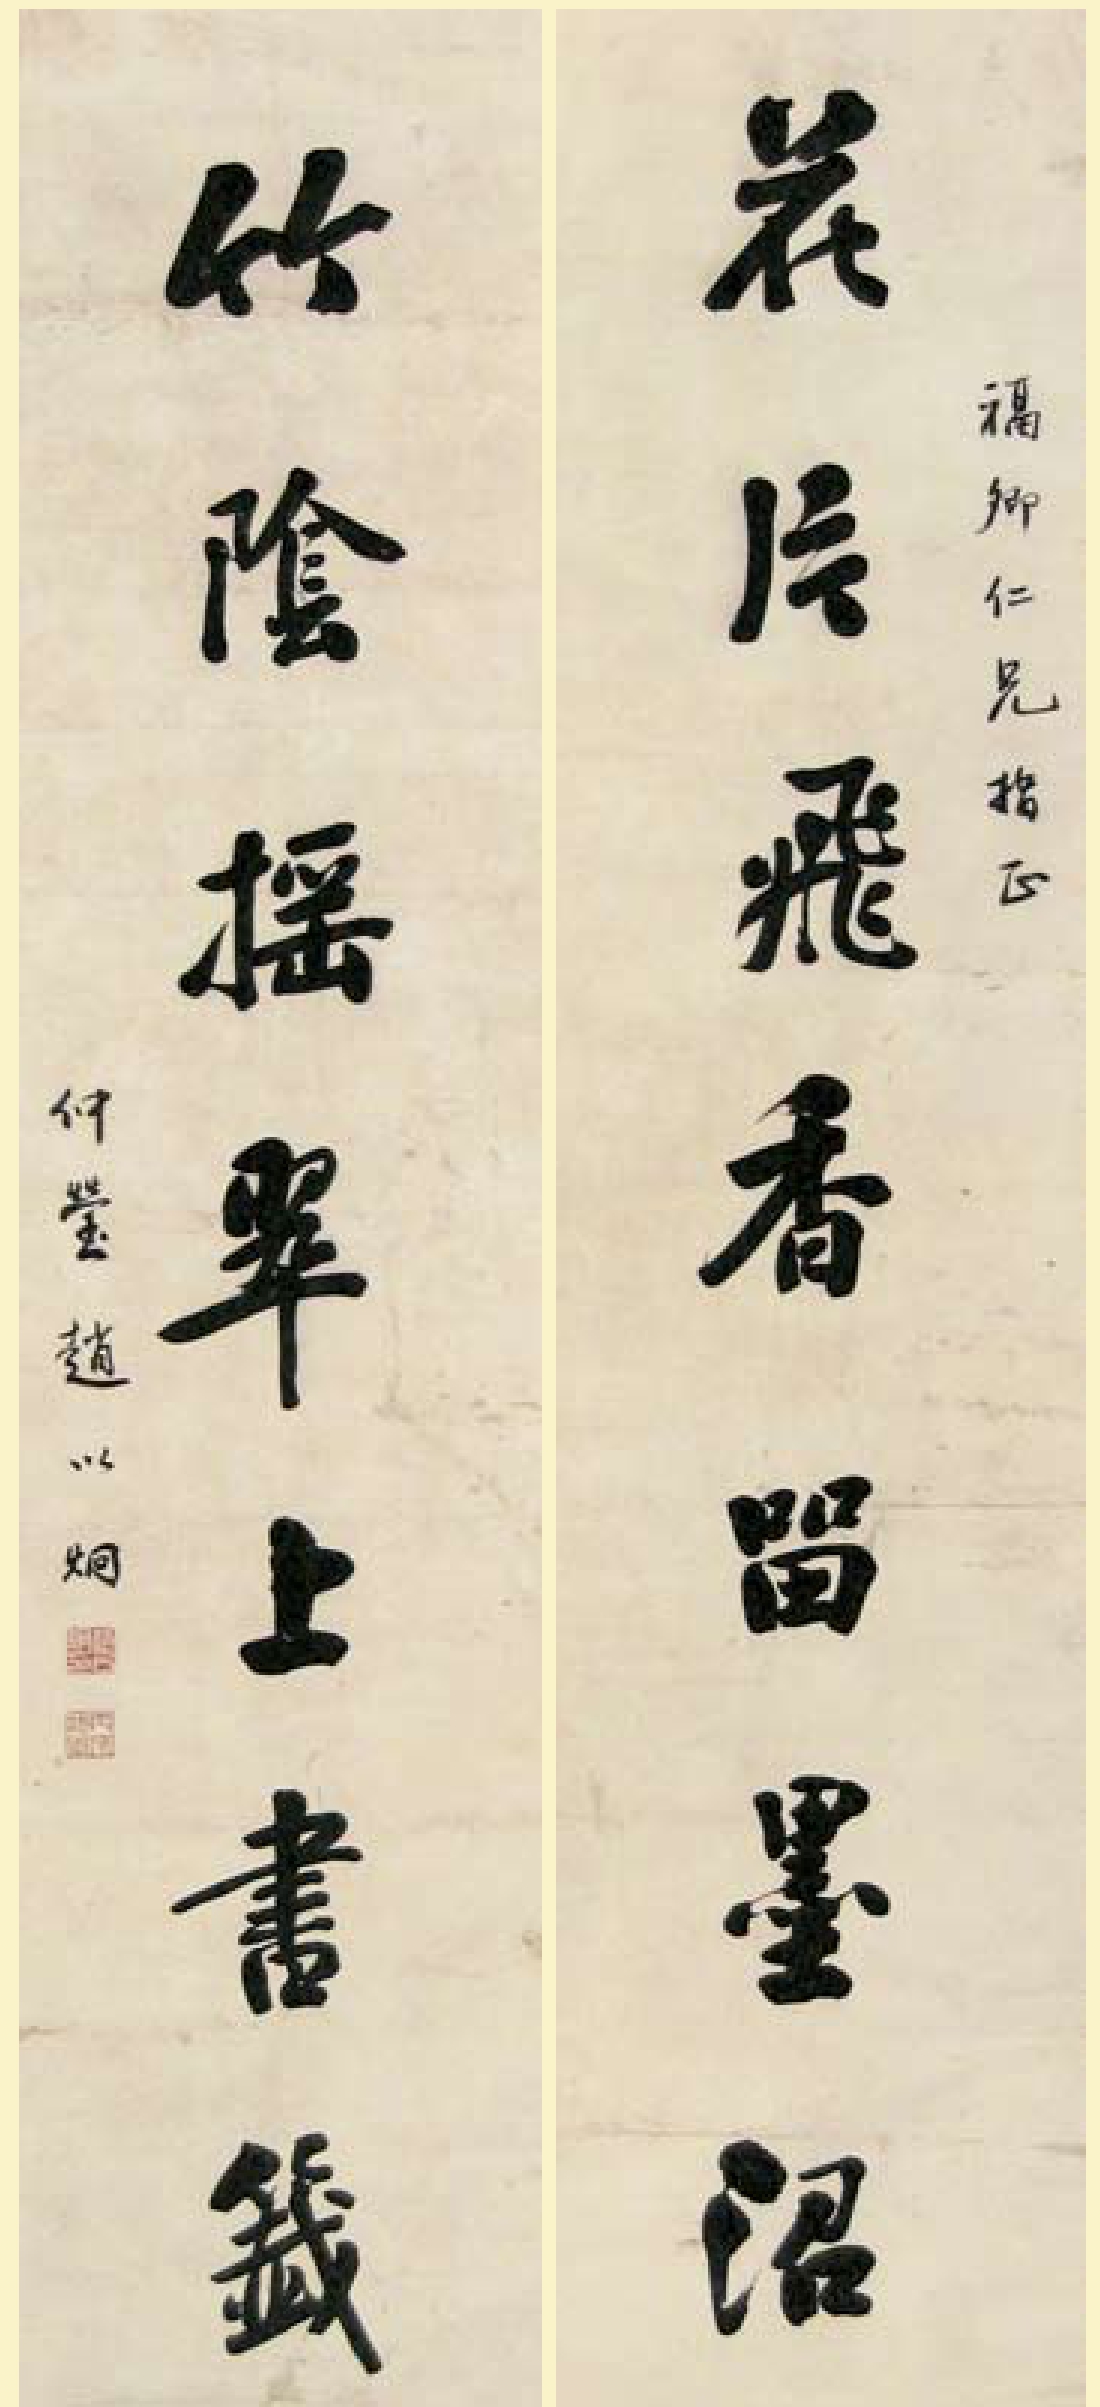 福卿仁兄指正
花片飛香留墨沼
竹陰搖翠上書籤
仲瑩趙以炯